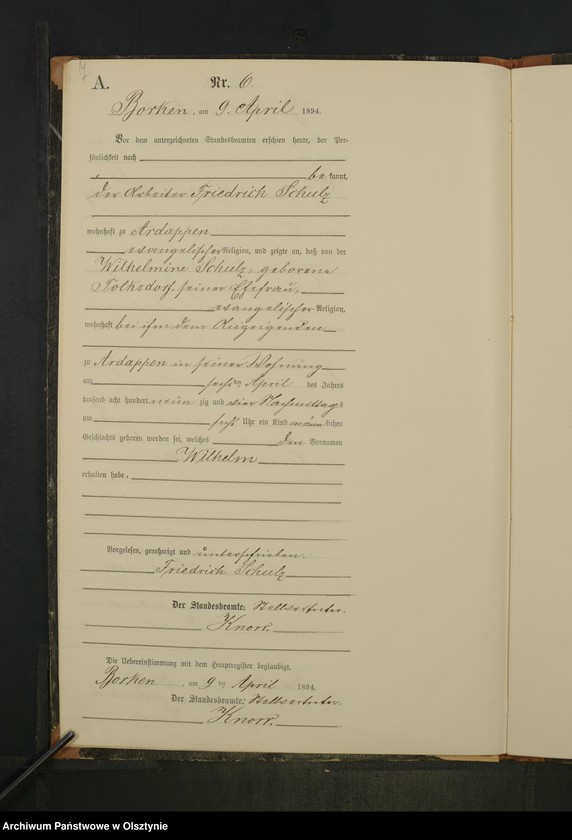 A.
Nr. 6.
Borken, am 9. April 1894.
Vor dem unterzeichneten Standesbeamten erschien heute, der Per-
sönlichkeit nach
bekannt,
der Arbeiter Friedrich Schulz
wohnhaft zu Ardappen
evangelischer Religion, und zeigte an, daß von der
Wilhelmine Schulz, geborene
Tolksdorf, seiner Ehefrau,
evangelischer Religion,
wohnhaft bei ihm dem Anzeigenden
zu Ardappen in seiner Wohnung
am sechsten April des Jahres
tausend acht hundert neunzig und vier Nachmittags
um sechs Uhr ein Kind männlichen
Geschlechts geboren worden sei, welches den Vornamen
Wilhelm
erhalten habe.
Vorgelesen, genehmigt und unterschrieben.
Friedrich Schulz
Der Standesbeamte: Stellvertreter.
Knorr.
Die Uebereinstimmung mit dem Hauptregister beglaubigt.
Borken, am 9ten April 1894.
Der Standesbeamte: Stellvertreter.
Knorr.
Archiwum Państwowe w Olsztynie